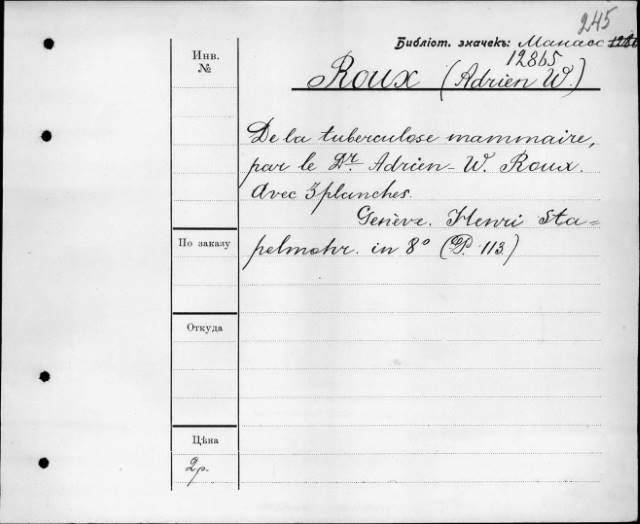 245
Библіот. значекъ: Манасс
12865
Инв.
№
Roux (Adrien W.)
De la tuberculose mammaire,
par le Dr. Adrien-W. Roux.
Avec 3 planches.
Genève. Henri Sta=
По заказу
pelmohr. in 8° (P. 113.)
Откуда
Цѣна
2р.